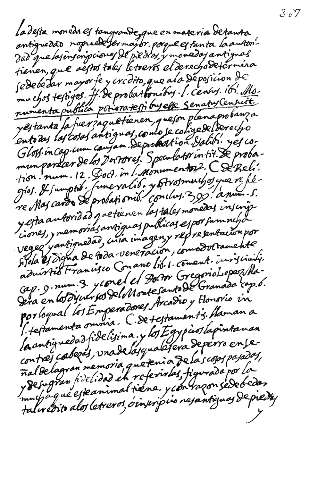 307
la desta moneda es tan grande, que en materia de tanta
antiguedad no puede ser mayor. porque es tanta la autori-
dad que las inscripciones de piedras, y monedas antiguas
tienen, que a estos tales letreros el derecho determina
se debe dar mayor fe y credito, que a la deposicion de
muchos testigos. ff. de probationibus. l. census. ibi. Mo-
numenta publica potiora testibus esse Senatus censuit
y es tanta la fuerza que tienen, que son plena probanza
en todas las cosas antiguas, como se colige del derecho
Gloss. in cap. cum causam de probation. di alibi. y es co-
mun parecer de los Doctores. Speculator in tit. de proba-
tion. num. 12. Doct. in l. Monumentor. C. de Reli-
gios. & sumptib. funeralib. y otros muchos que refie-
re Mascardo de probationib. conclus. a num. 5.
y esta autoridad que tienen las tales monedas, inscrip-
ciones, y memorias antiguas publicas es por su mucha
vegez y antiguedad, cuya imagen y representacion por
si sola es digna de toda veneracion, como doctamente
advirtio Francisco Conano lib. 1. coment. juris civilis.
cap. 9. num. 3. y con el el Dotor Gregorio Lopez Ma-
dera en los Discursos del Monte Santo de Granada cap. 6.
por lo qual los Emperadores Arcadio y Honorio in
l. testamenta omnia. C. de testamentis. llaman a
la antiguedad fidelissima. y los Egypcios la pintavan
con tres cabezas, una de las quales era de perro en se-
ñal de la gran memoria que tenia de las cosas pasadas,
y de su gran fidelidad en referirlas, figurada por la
mucha que este animal tiene. y con razon se debe dar
tal credito a los letreros, o inscripciones antiguas de piedras
y